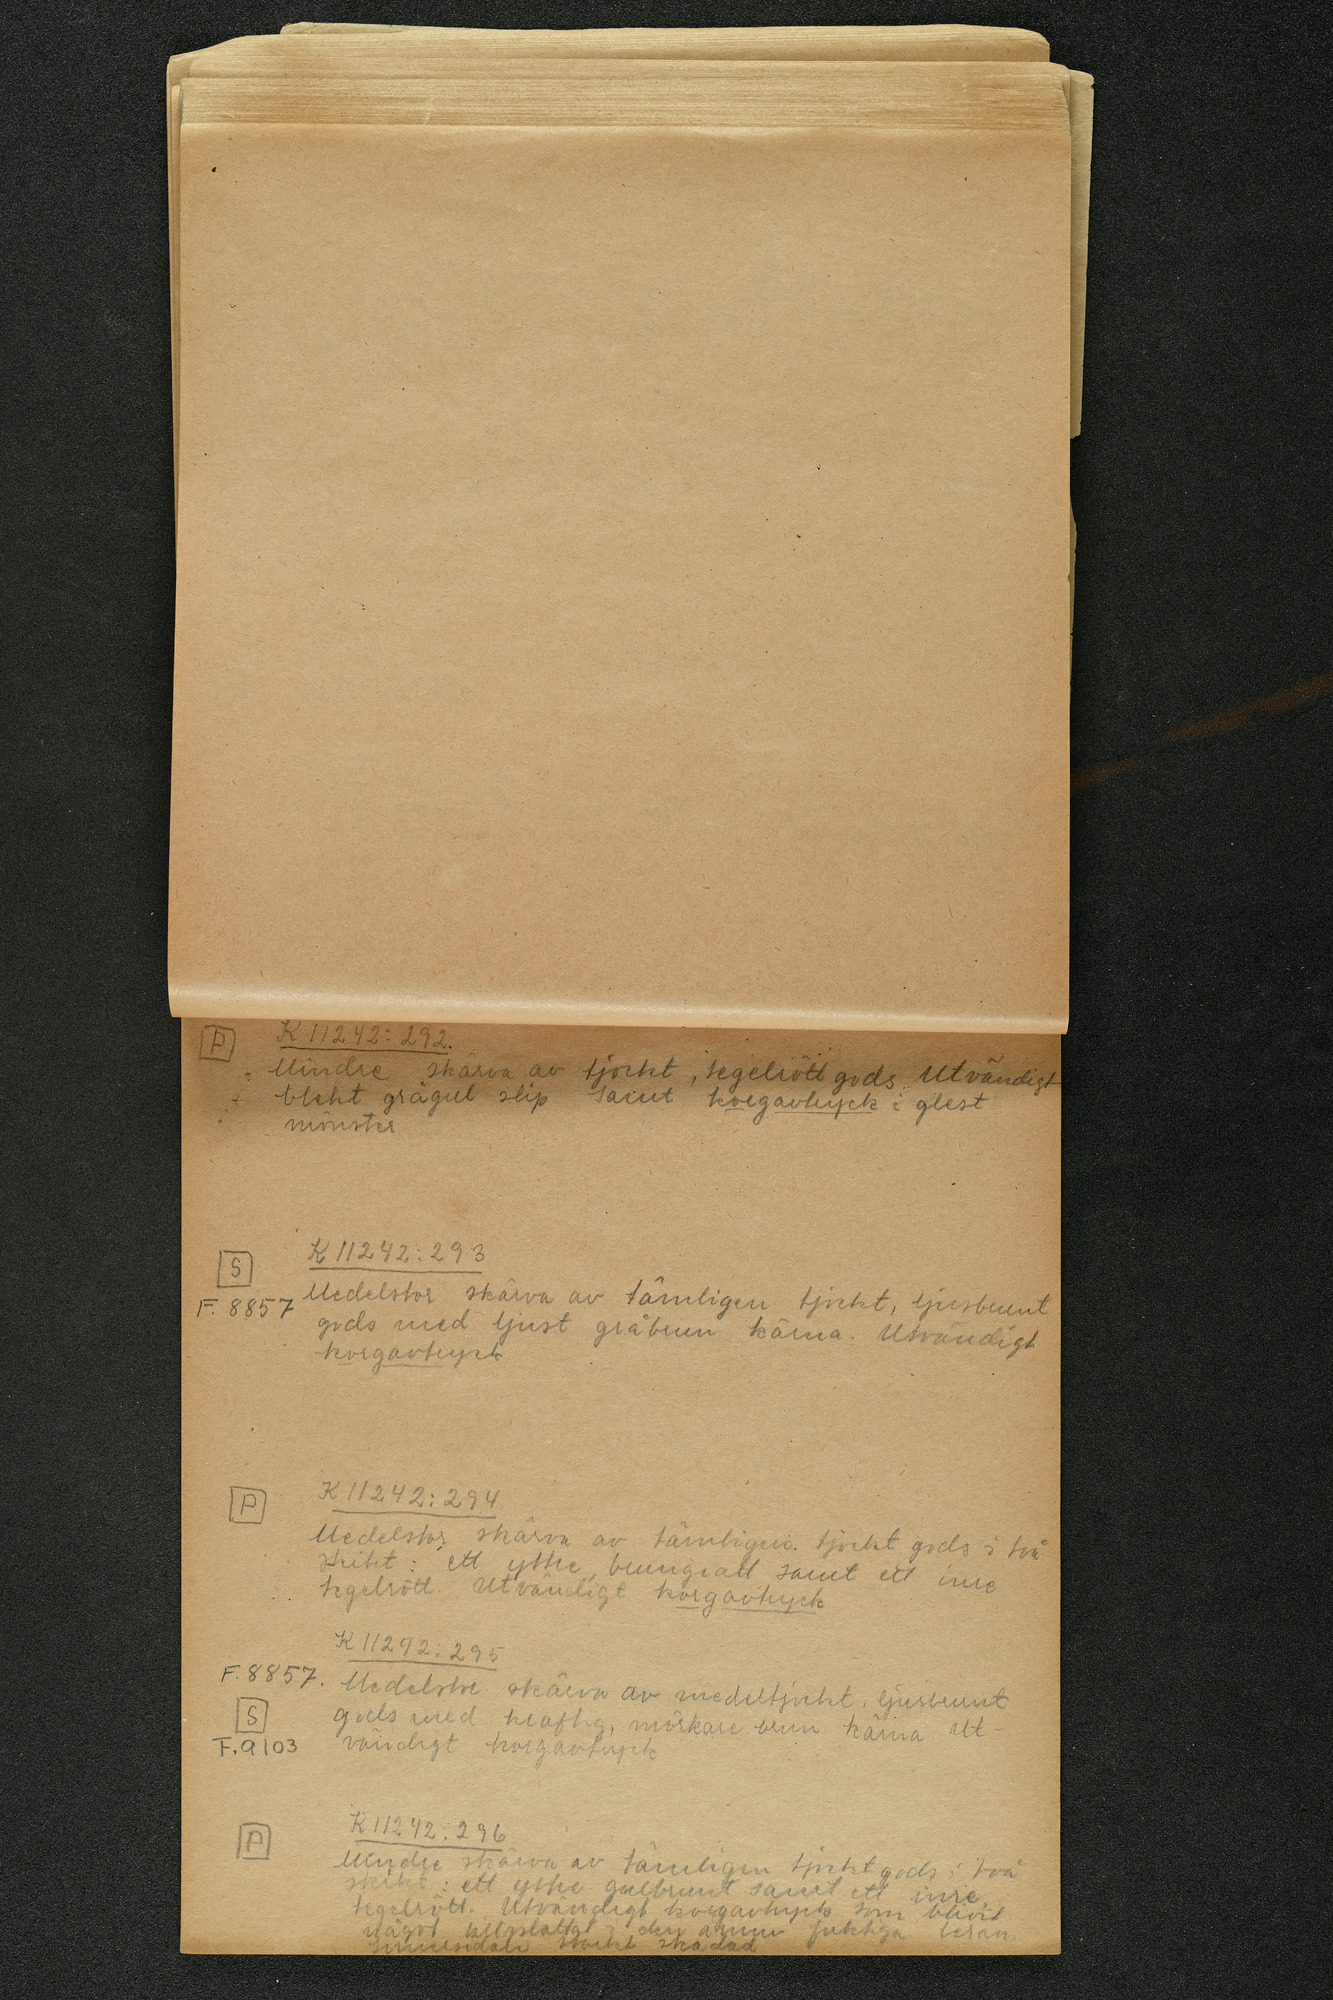 P K 11242:292.
Mindre skärva av tjockt, tegelrött gods. Utvändigt
blekt grågul slip samt korgavtryck i glest
mönster
S K 11242:293
F. 8857 Medelstor skärva av tämligen tjockt, ljusbrunt
gods med ljust gråbrun kärna. Utvändigt
korgavtryck
P K 11242:294
Medelstor skärva av tämligen tjockt gods i två
skikt: ett yttre, brungrått samt ett inre
tegelrött. Utvändigt korgavtryck
K 11242:295
F. 8857. Medelstor skärva av medeltjockt, ljusbrunt
S gods med kraftig, mörkare brun kärna Ut-
F. 9103 vändigt korgavtryck
P K 11242:296
Mindre skärva av tämligen tjockt gods i två
skikt: ett yttre gulbrunt samt ett inre,
tegelrött. Utvändigt korgavtryck som blivit
något tillplattat i den ännu fuktiga leran
Innersidan starkt skadad